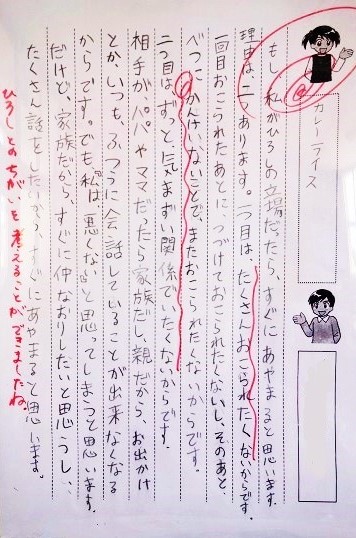 カレーライス
もし私がひろしの立場だったら、すぐにあやまると思います。
理由は、二つあります。一つ目は、たくさんおこられたくないからです。
一回おこられたあとに、つづけておこられたくないし、そのあと、
べつにかんけいないことで、またおこられたくないからです。
二つ目は、ずっと気まずい関係でいたくないからです。
相手が、パパやママだったら家族だし、親だから、お出かけ
とか、いつも、ふつうに会話していることが出来なくなる
からです。でも、「私は悪くない。」と思ってしまうと思います。
だけど、家族だから、すぐに仲なおりしたいと思うし、
たくさん話をしたいから、すぐにあやまると思います。
ひろしとのちがいを考えることができましたね。